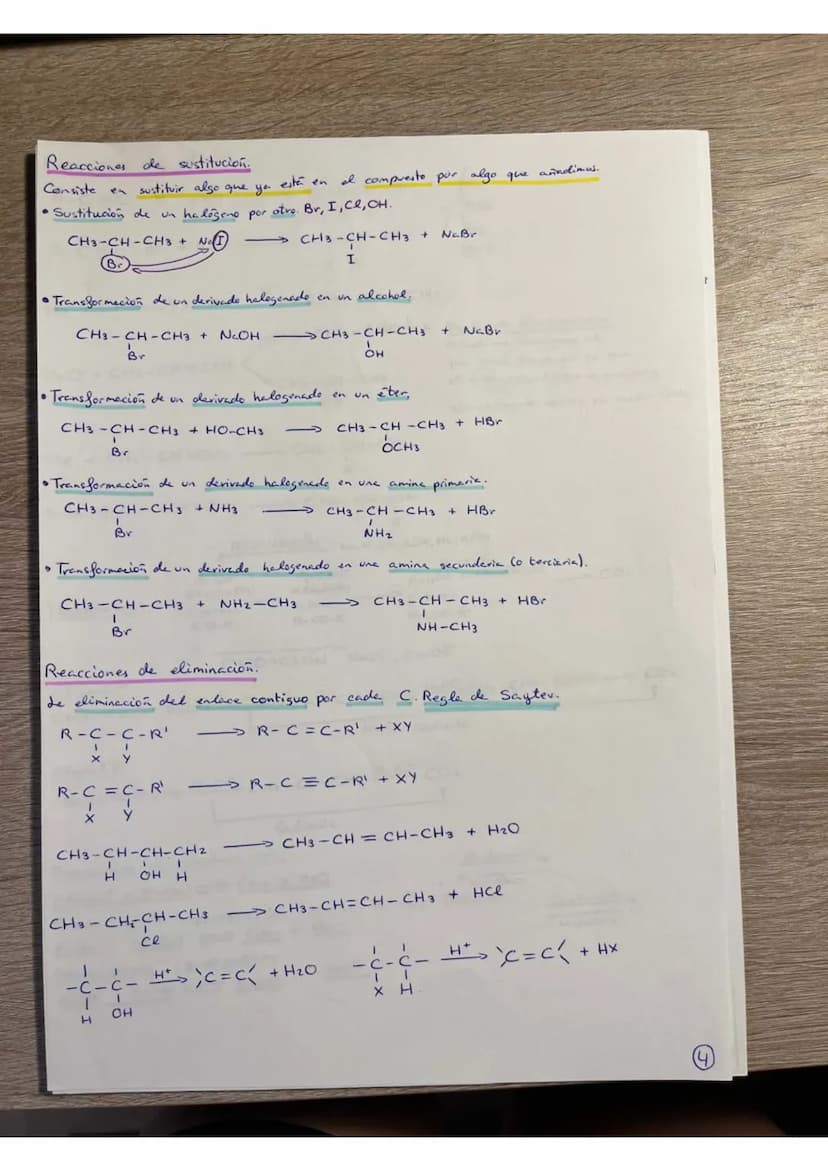 Reacciones de sustitución.
Consiste en sustituir algo que ya está en el compuesto por algo que añadimos.
• Sustitución de un halógeno por otro. Br, I, Cl, OH.
CH3-CH-CH3 + NaI ⟶ CH3-CH-CH3 + NaBr
Br I
• Transformación de un derivado halogenado en un alcohol.
CH3-CH-CH3 + NaOH ⟶ CH3-CH-CH3 + NaBr
Br OH
• Transformación de un derivado halogenado en un éter.
CH3-CH-CH3 + HO-CH3 ⟶ CH3-CH-CH3 + HBr
Br OCH3
• Transformación de un derivado halogenado en una amina primaria.
CH3-CH-CH3 + NH3 ⟶ CH3-CH-CH3 + HBr
Br NH2
• Transformación de un derivado halogenado en una amina secundaria (o terciaria).
CH3-CH-CH3 + NH2-CH3 ⟶ CH3-CH-CH3 + HBr
Br NH-CH3
Reacciones de eliminación.
de eliminación del enlace contiguo por cada C. Regla de Saytev.
R-C-C-R' ⟶ R-C=C-R' + XY
X Y
R-C=C-R' ⟶ R-C≡C-R' + XY
X Y
CH3-CH-CH-CH2 ⟶ CH3-CH=CH-CH3 + H2O
H OH H
CH3-CH2-CH-CH3 ⟶ CH3-CH=CH-CH3 + HCl
Cl
-C-C- H+⟶ C=C + H2O -C-C- H+⟶ C=C + HX
H OH X H
4